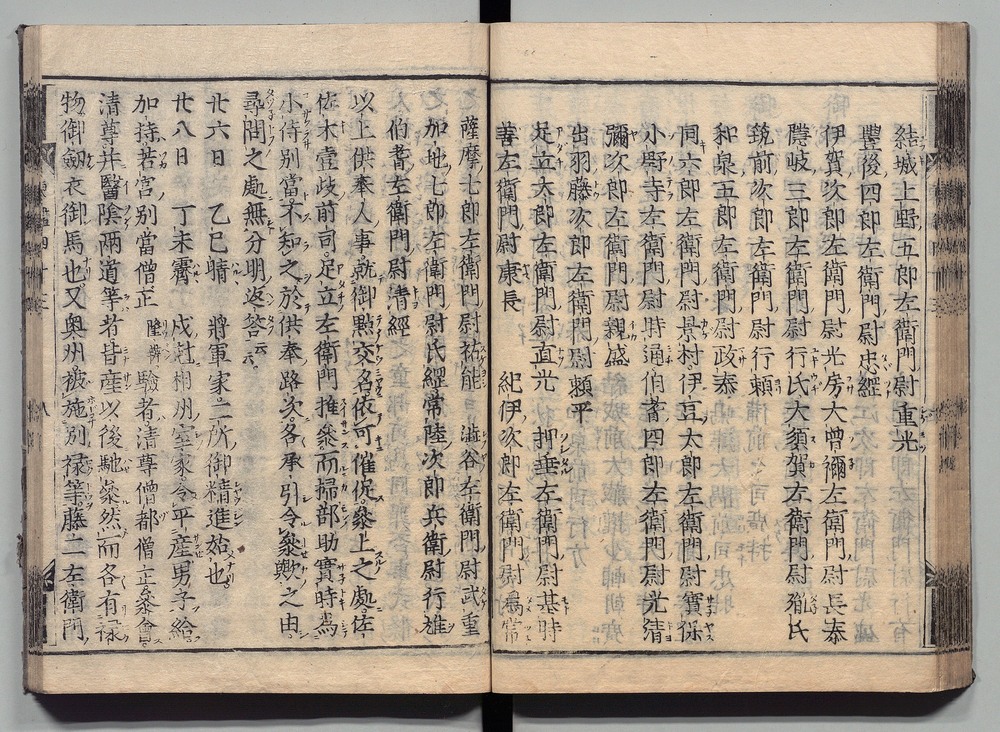 結城上野五郎左衛門尉重光
豐後四郎左衛門尉忠經
伊賀次郎左衛門尉光房大曾禰左衛門尉長泰
隱岐三郎左衛門尉行氏大須賀左衛門尉胤氏
筑前次郎左衛門尉行頼
和泉五郎左衛門尉政泰
同六郎左衛門尉景村伊豆太郎左衛門尉實保
小野寺左衛門尉時通伯耆四郎左衛門尉光清
彌次郎左衛門尉親盛
出羽藤次郎左衛門尉頼平
足立太郎左衛門尉直光 押垂左衛門尉基時
善左衛門尉康長 紀伊次郎左衛門尉爲常
薩摩七郎左衛門尉祐能 澁谷左衛門尉武重
加地七郎左衛門尉氏經常陸次郎兵衛尉行雄
伯耆左衛門尉清經
以上供奉人事就御點交名依可催促參上之處佐
佐木壹歧前司足立左衛門推參而掃部助實時爲
小侍別當不知之於供奉路次各承引令參輿之由
尋問之處無分明返答云云
廿六日 乙巳晴 將軍家二所御精進始也
廿八日 丁未霽 戍尅相州室家令平産男子給
加持若宮別當僧正隆辨驗者清尊僧都僧正參會
清尊并醫陰兩道等者皆産以後馳參然而各有祿
物御劔衣御馬也又奥州被施別禄等藤二左衛門